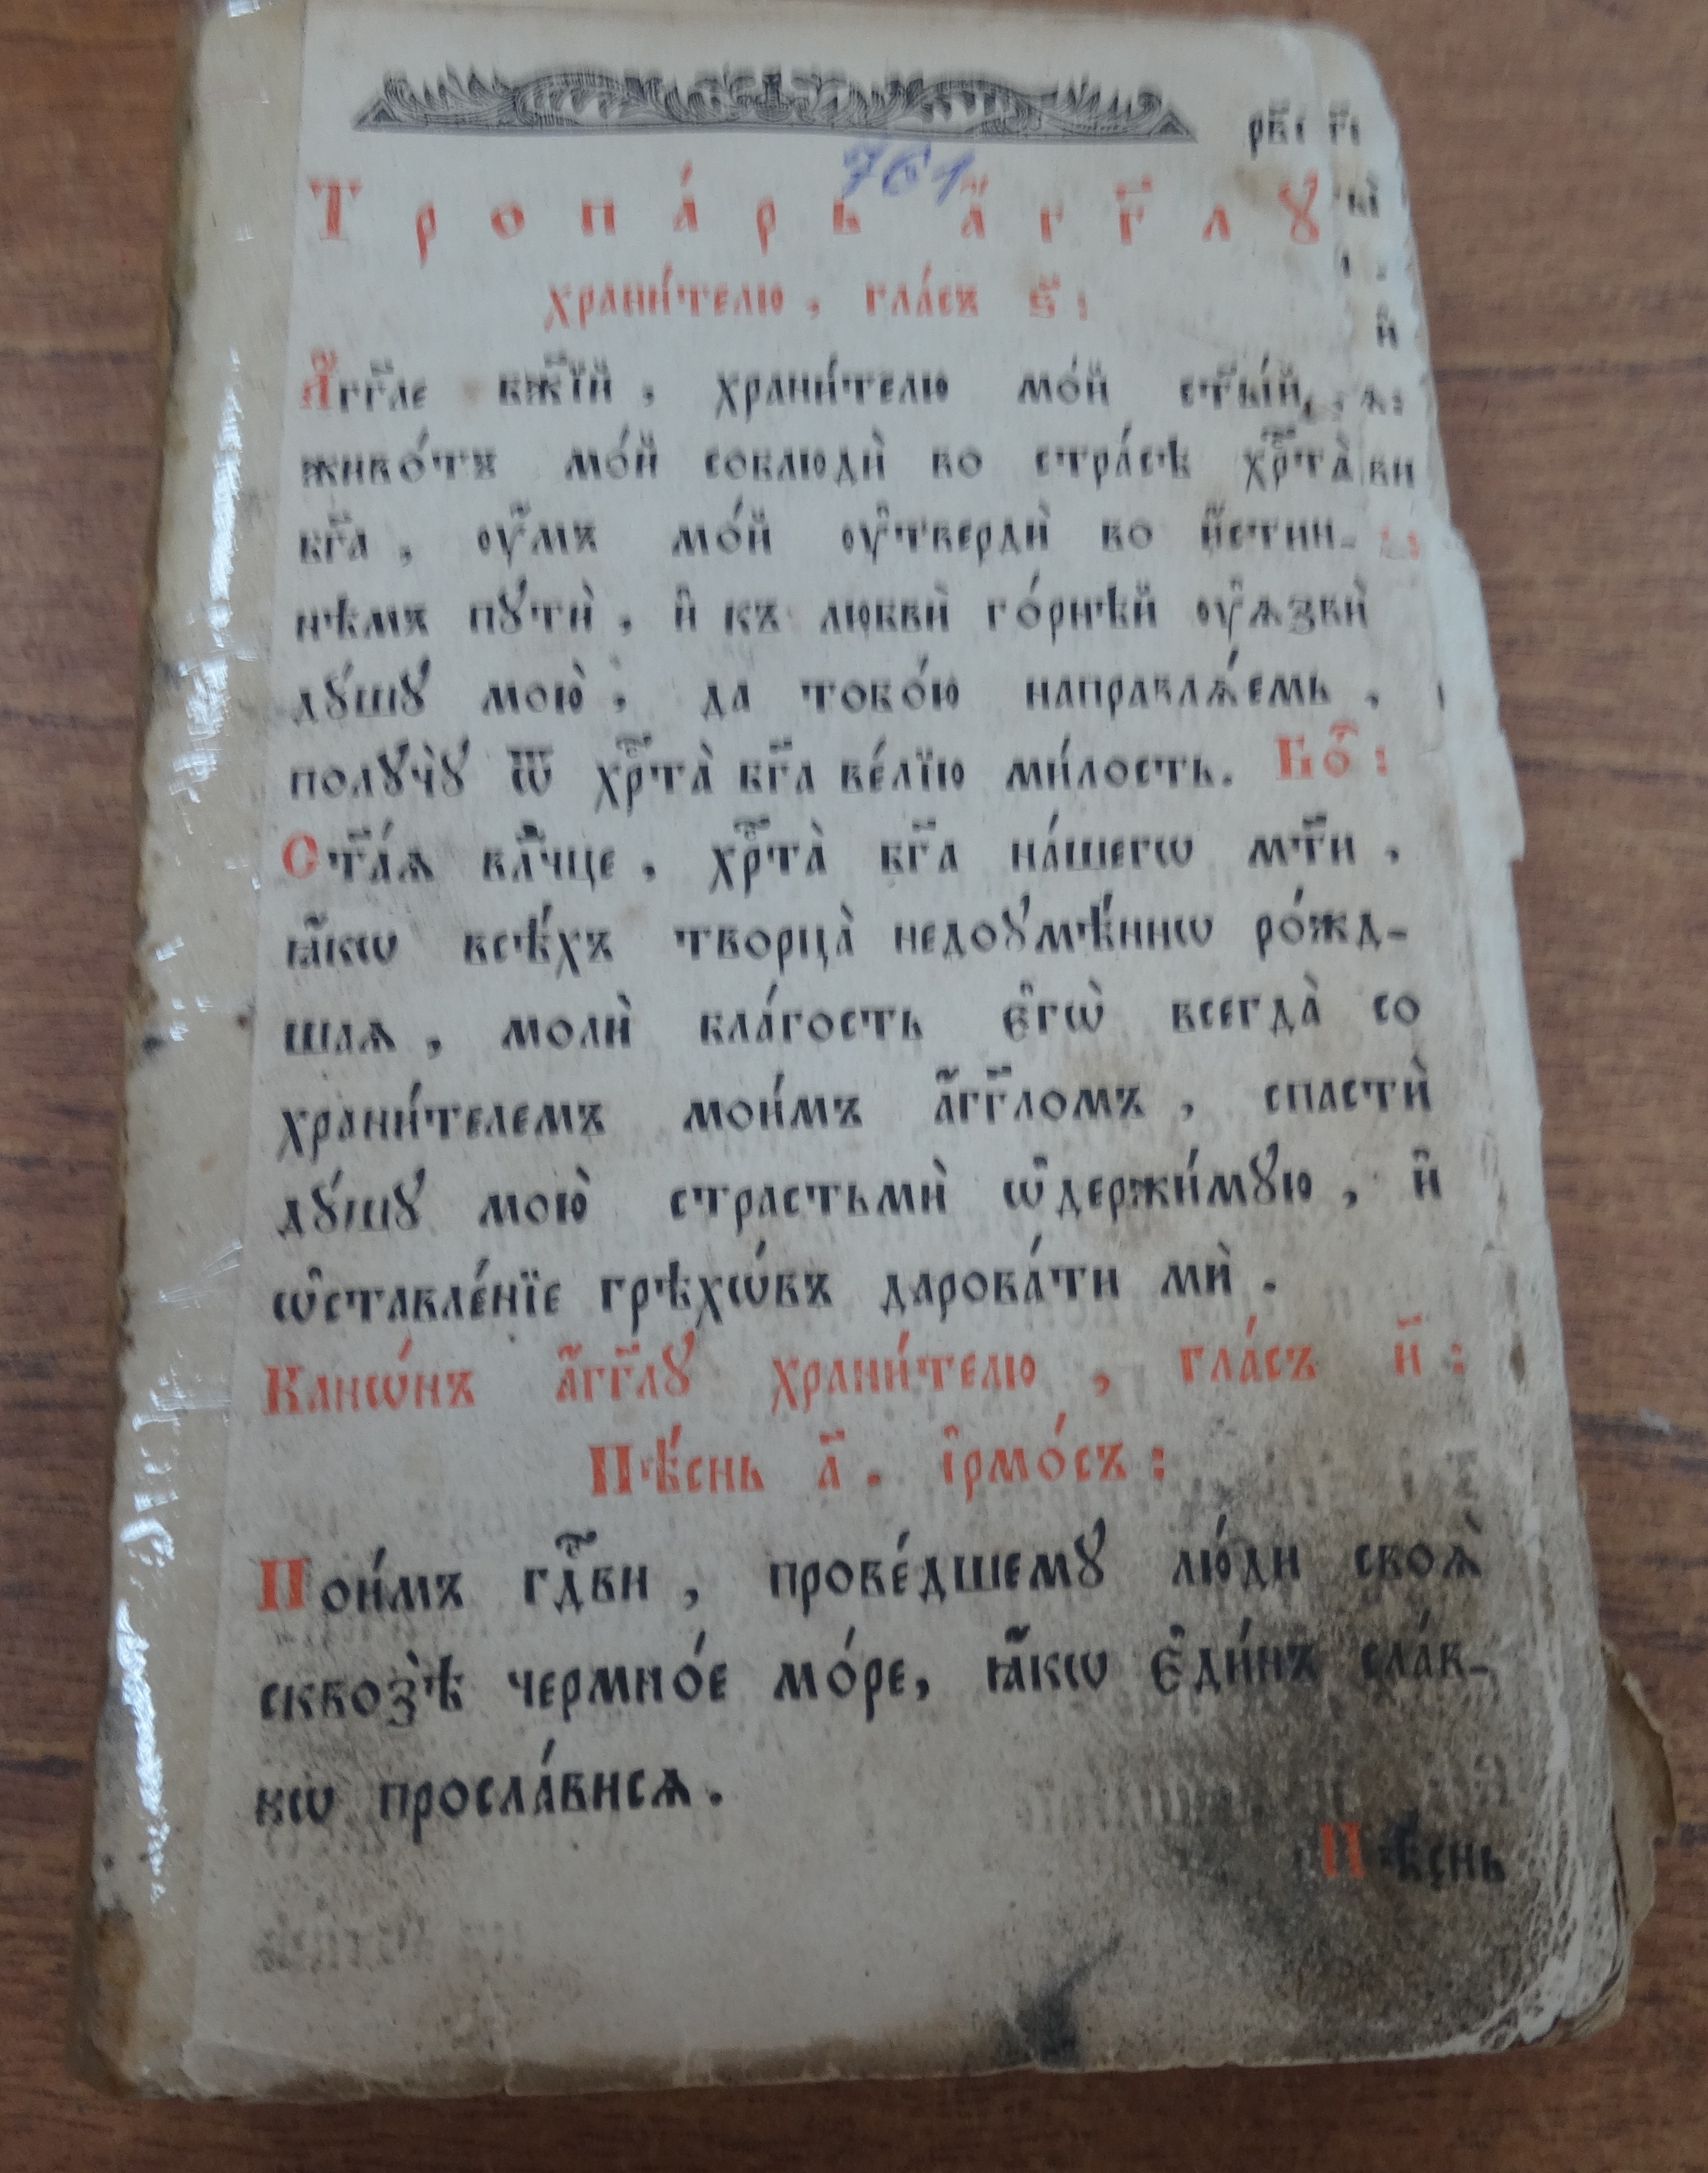 761
Тропа́рь а҆́гг҃лꙋ
храни́телю, гла́съ ѕ҃:
А҆́гг҃ле бж҃їй, храни́телю мо́й ст҃ы́й,
живо́тъ мо́й соблюдѝ во стра́сѣ хрⷭ҇та̀
бг҃а, ᲂу҆́мъ мо́й ᲂу҆твердѝ во и҆́стин-
нѣмъ пꙋтѝ, и҆ къ любвѝ го́рнѣй ᲂу҆ѧзвѝ
дꙋ́шꙋ мою̀, да тобо́ю направлѧ́емь,
полꙋчꙋ̀ ѿ хрⷭ҇та̀ бг҃а ве́лїю ми́лость. Бо҇:
Ст҃а́ѧ влⷣчце, хрⷭ҇та̀ бг҃а на́шегѡ мт҃и,
ꙗ҆́кѡ всѣ́хъ творца̀ недоꙋмѣ́ннѡ ро́жд-
шаѧ, молѝ бла́гость є҆гѡ̀ всегда̀ со
храни́телемъ мои́мъ а҆́гг҃ломъ, спастѝ
дꙋ́шꙋ мою̀ страстьмѝ ѡ҆держи́мꙋю, и҆
ѡ҆ставле́нїе грѣхѡ́въ дарова́ти мѝ.
Канѡ́нъ а҆́гг҃лꙋ храни́телю, гла́съ и҃:
Пѣ́снь а҃. і҆рмо́съ:
Пои́мъ гдⷭ҇ви, прове́дшемꙋ лю́ди своѧ̀
сквозѣ̀ чермно́е мо́ре, ꙗ҆́кѡ є҆ди́нъ сла́в-
нѡ просла́висѧ.
Пѣ́снь